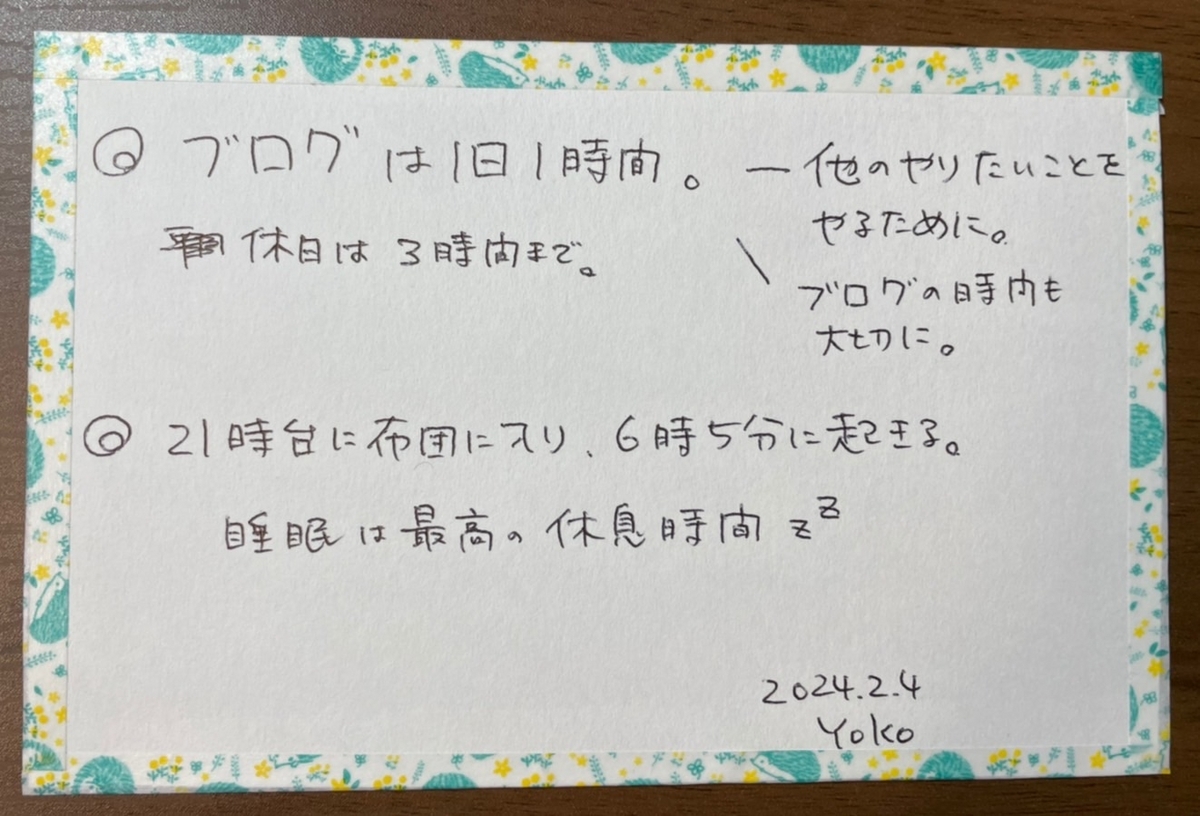 ◎ ブログは1日1時間。 — 他のやりたいことを
やるために。
休日は3時間まで。
\ ブログの時間も
大切に。
◎ 21時台に布団に入り、6時5分に起きる。
睡眠は最高の休息時間 zz
2024.2.4
Yoko